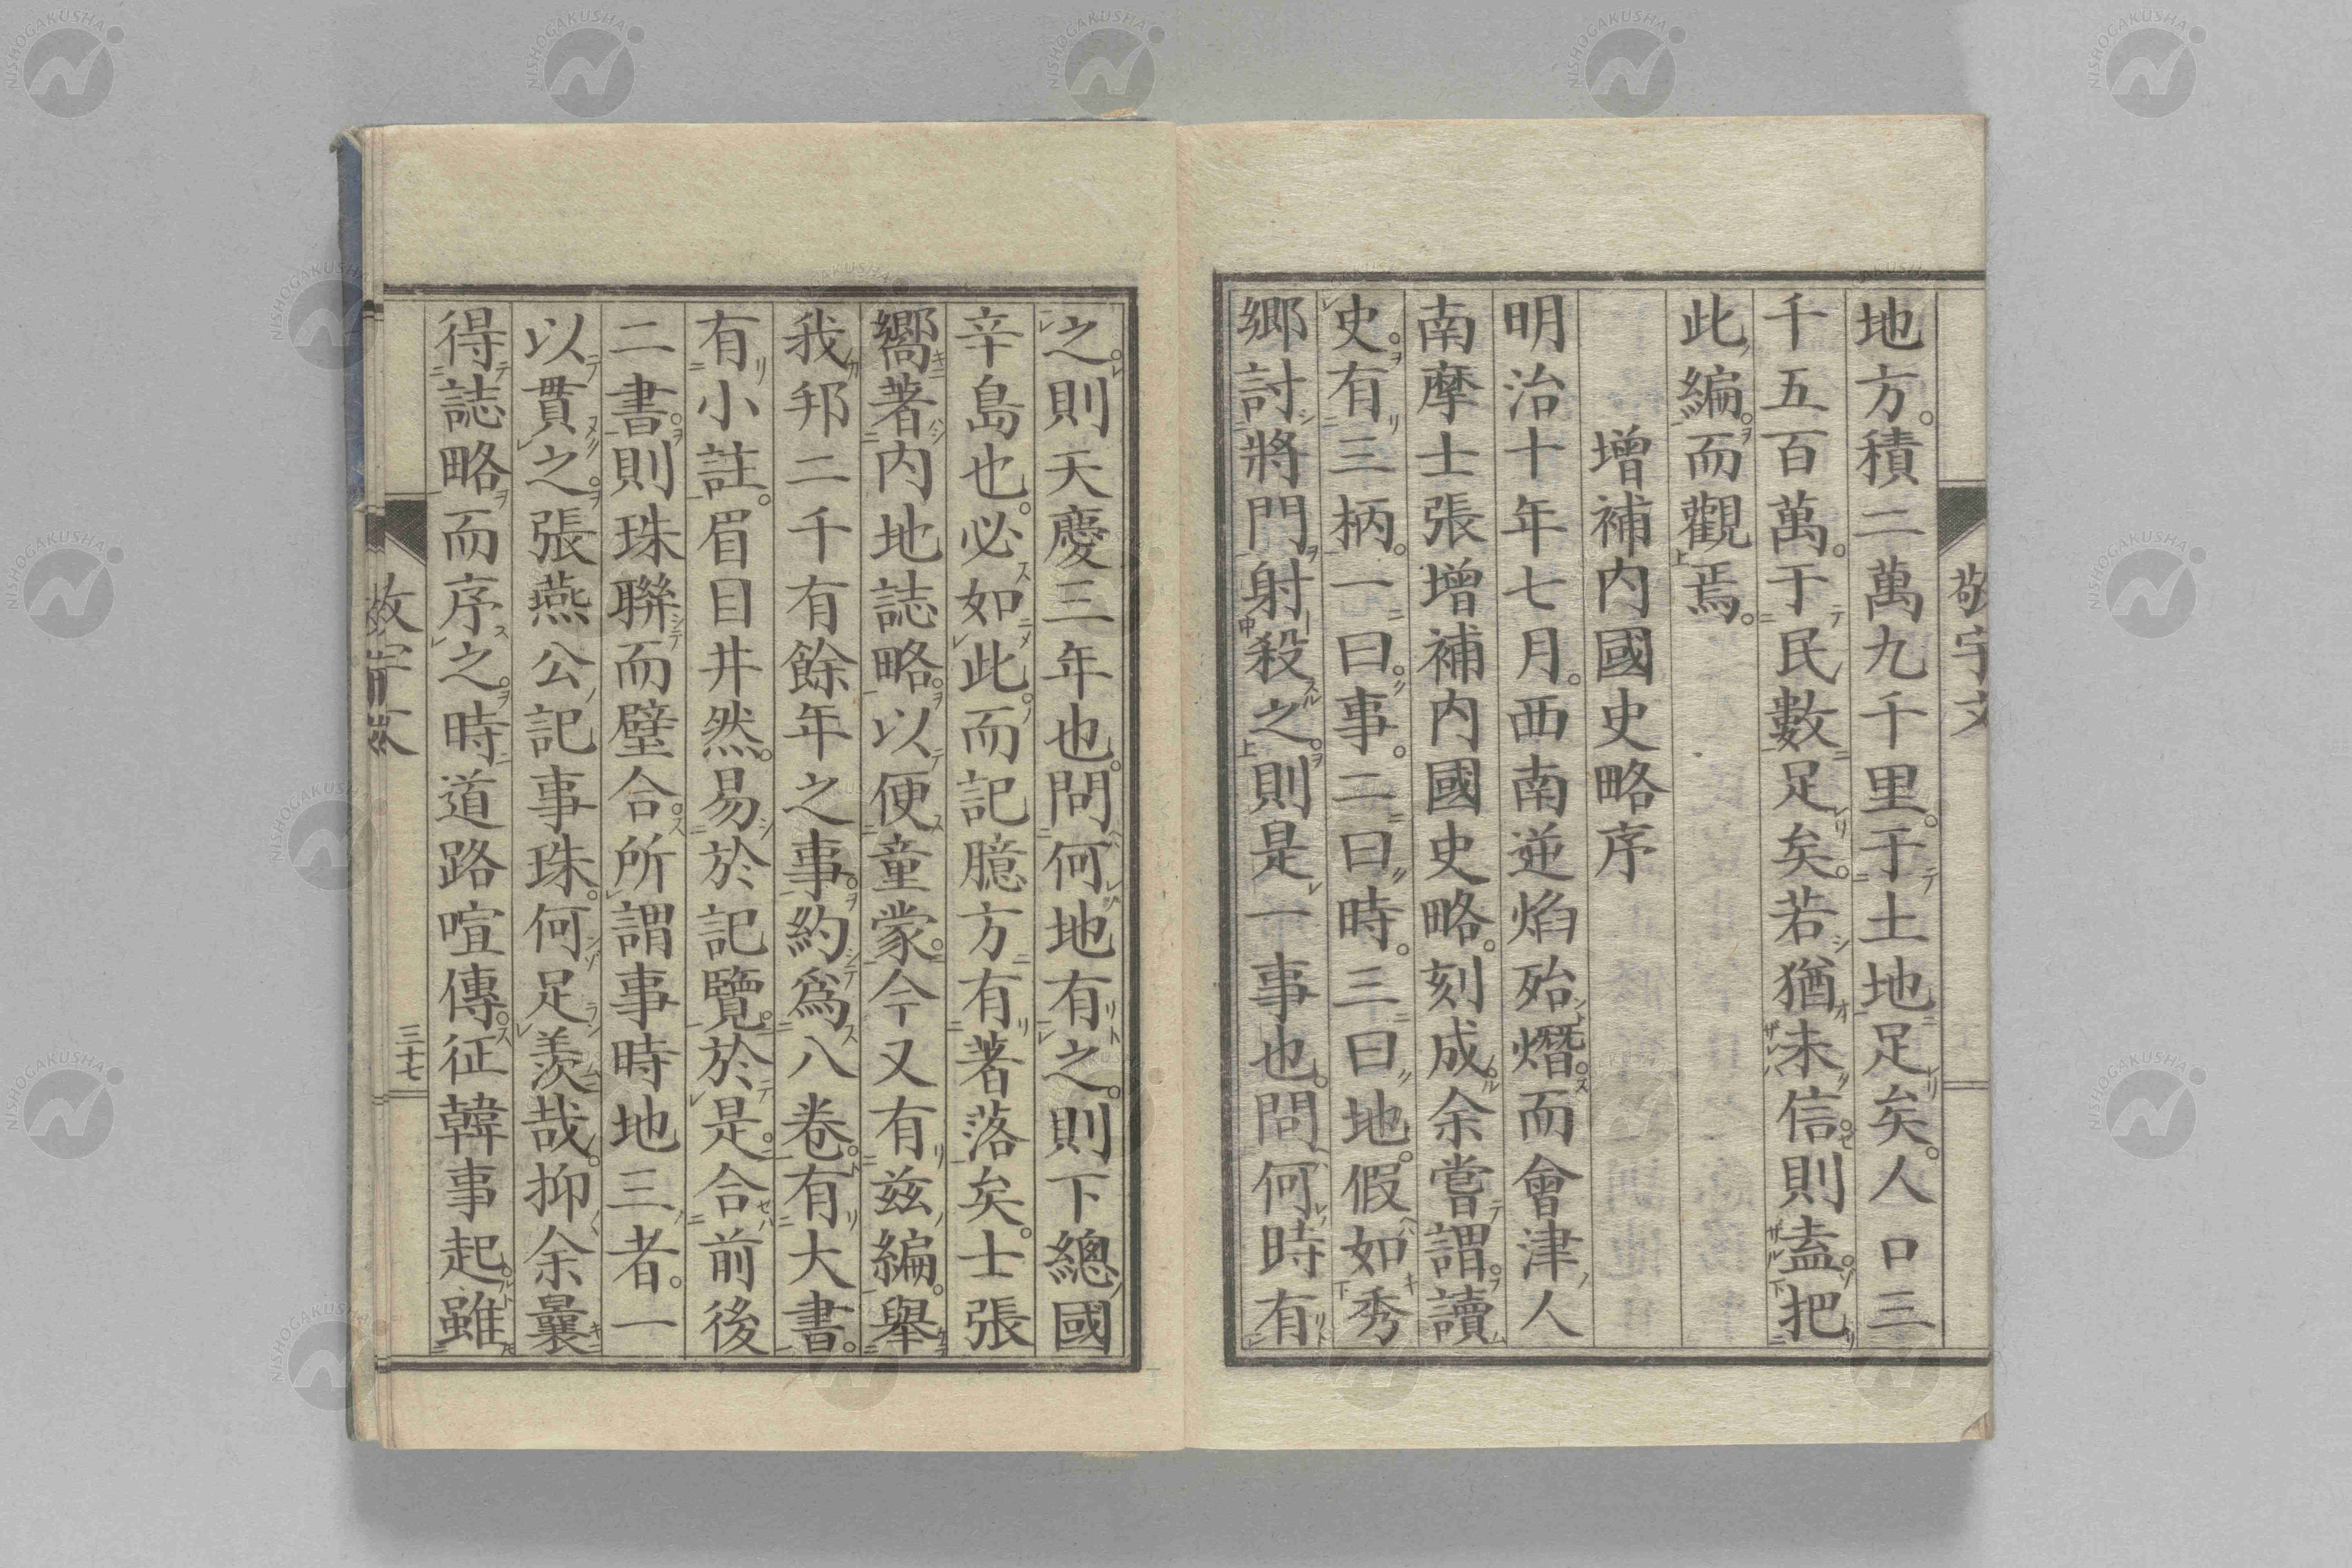 地方。積二萬九千里。于土地足矣。人口三
千五百萬。于民數足矣。若猶未信則盍把
此編。而觀焉。
增補内國史略序
明治十年七月。西南逆焰殆熸。而會津人
南摩士張增補内國史略。刻成。余嘗謂。讀
史。有三柄。一曰。事。二曰時。三曰地。假如秀
郷討將門射殺之。則是一事也。問何時有
之。則天慶三年也。問何地有之。則下總國
辛島也。必如此。而記臆方有著落矣。士張
嚮著内地誌略。以便童蒙。今又有兹編。舉
我邦二千有餘年之事。約爲八卷。有大書。
有小註。眉目井然。易於記覽。於是。合前後
二書。則珠聯而璧合。所謂事時地三者。一
以貫之。張燕公記事珠。何足羨哉。抑余曩
得誌略而序之。時道路喧傳。征韓事起。雖
敬宇文
三十七
NISHOGAKUSHA